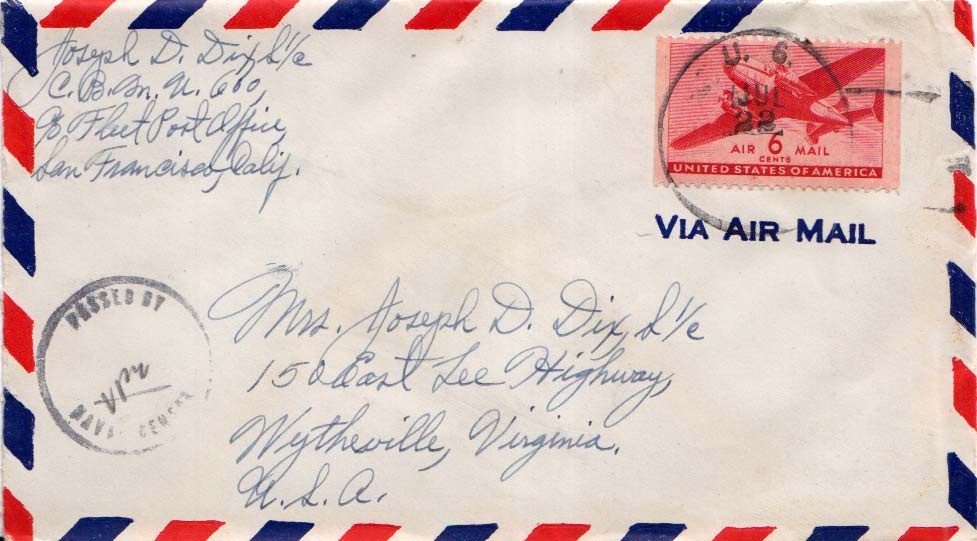 Joseph D. Dix S1/c
C.B.M.U. 600,
℅ Fleet Post Office,
San Francisco, Calif.
U. S.
JUL
22
AIR 6 MAIL
CENTS
UNITED STATES OF AMERICA
VIA AIR MAIL
PASSED BY
NAVAL CENSOR
Mrs. Joseph D. Dix, S1/c
150 East Lee Highway,
Wytheville, Virginia.
U.S.A.